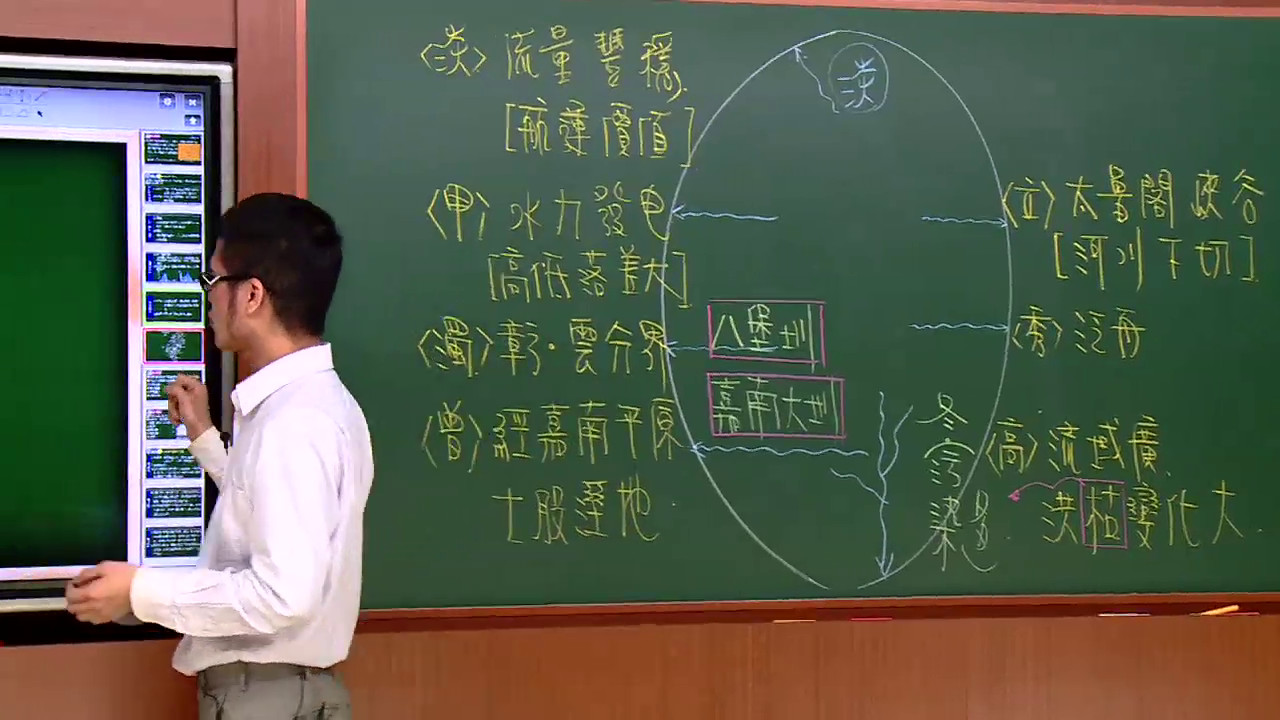 〈淡〉流量豐穩
[航運價值]
〈甲〉水力發电
[高低落差大]
〈濁〉彰·雲分界
〈曾〉經嘉南平原
七股溼地
淡
八堡圳
嘉南大圳
冬污染易
〈立〉太魯閣峽谷
[河川下切]
〈秀〉泛舟
〈高〉流域廣
洪枯變化大